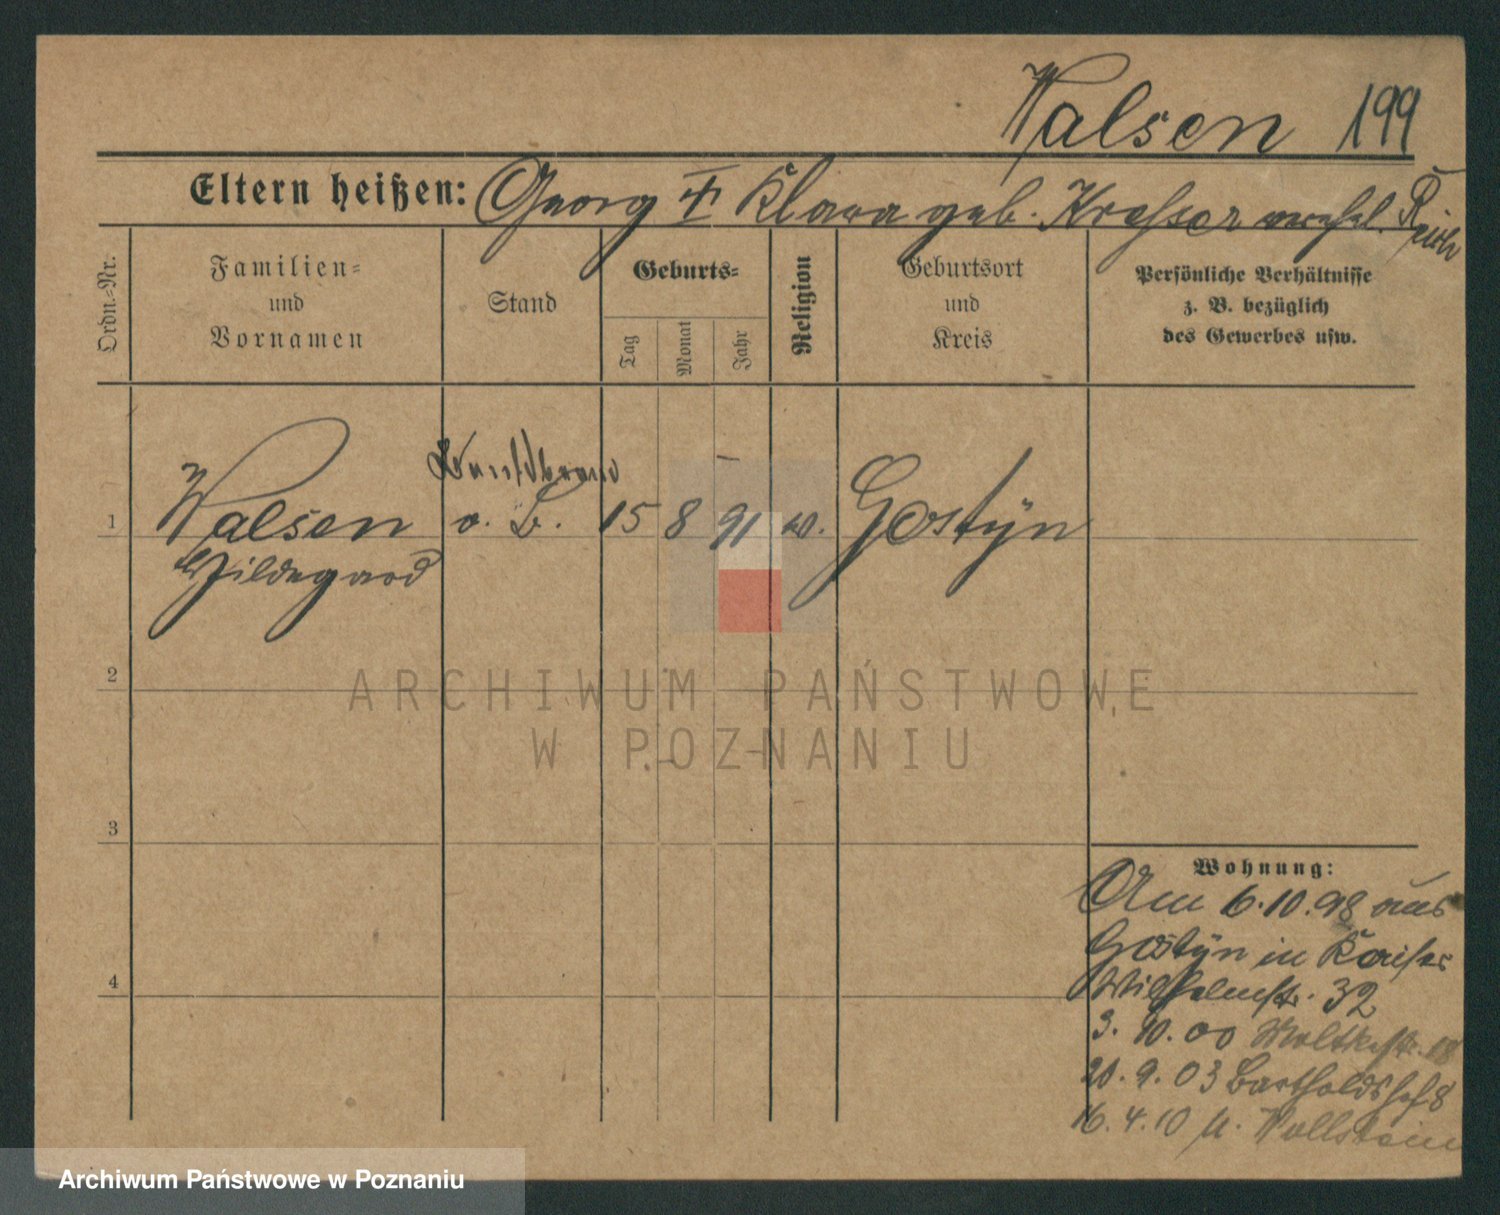 Walsen 199
Eltern heißen: Georg † Klara geb. Kresser verehel.
Ordn.-Nr.
Familien-
und
Vornamen
Stand
Geburts-
Tag
Monat
Jahr
Religion
Geburtsort
und
Kreis
Persönliche Verhältnisse
z. B. bezüglich
des Gewerbes usw.
1 Walsen o. B. 15 8 91 Gostÿn
Hildegard
2
3
4
Wohnung:
Am 6.10.98 aus
Gostÿn in Kaiser
Wilhelmstr. 32
3. 10. 00 Moltkestr. 18
20. 9. 03 Bartholdshof 8
16. 4. 10 n. Wollstein
ARCHIWUM PAŃSTWOWE
W POZNANIU
Archiwum Państwowe w Poznaniu